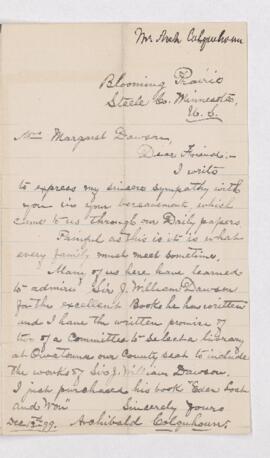 Mr. Arch Colquhoun
Blooming Prairie
Steele Co. Minnesota,
U. S.
Mrs Margaret Dawson,
Dear Friend:-
I write
to express my sincere sympathy with
you in your bereavement which
came to us through our Daily papers.
Painful as this is it is what
every family must meet sometime.
Many of us here have learned
to admire Sir J. William Dawson
for the excellent Books he has written
and I have the written promise of
two of a Committee to Select a library
at Owatonna our County seat to include
the works of Sir J. William Dawson.
I just purchased his book "Eden Lost
and Won" Sincerely Yours
Dec. 13th 99. Archibald Colquhoun.